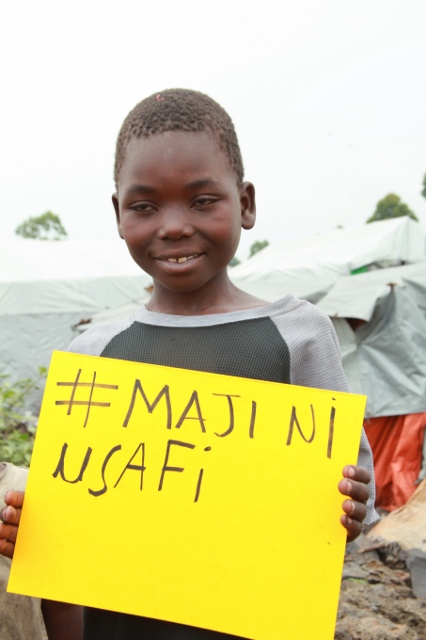 #MAJI Ni
USAFi